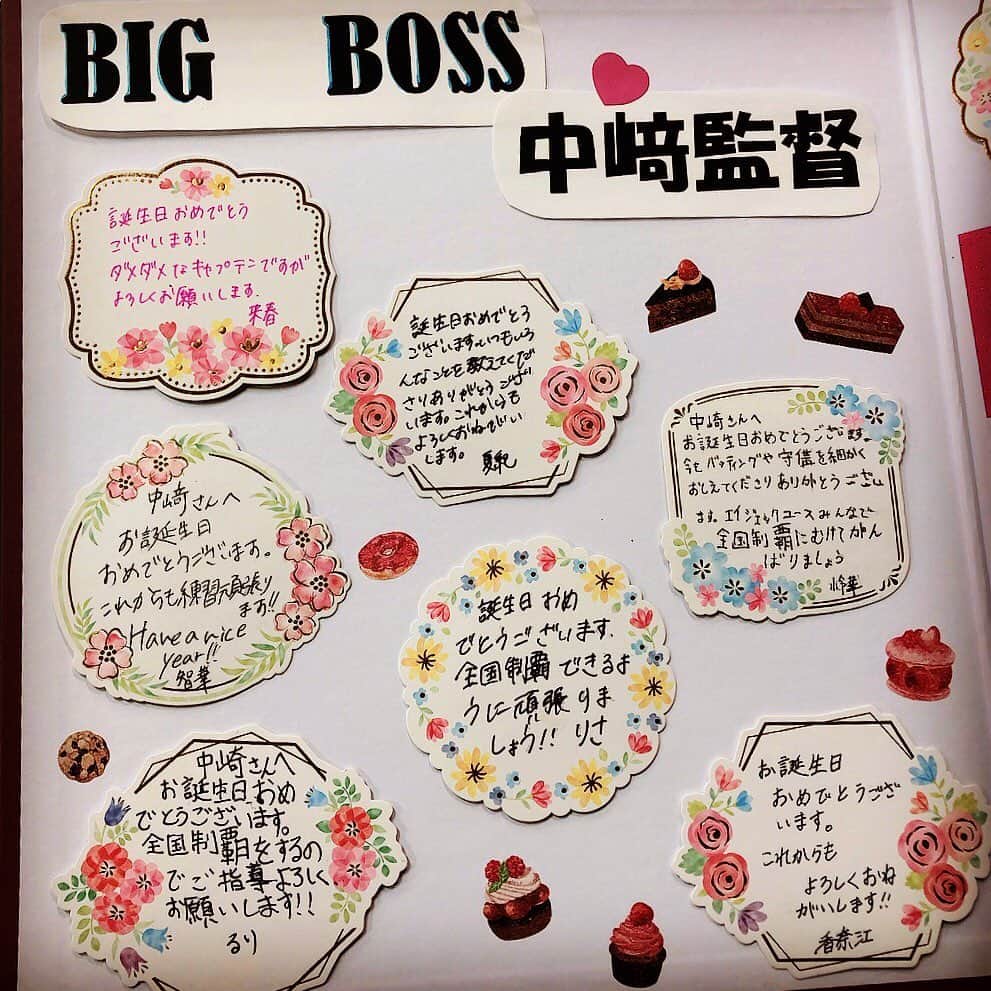 BIG BOSS
中﨑監督
誕生日おめでとう
ございます!!
ダメダメなキャプテンですが
よろしくお願いします。
来春
誕生日おめでとう
ございます。いつもいろ
んなことを教えてくだ
さりありがとうござ
います。これからも
よろしくおねがい
します。
夏紀
中崎さんへ
お誕生日おめでとうございます。
今もバッティングや守備を細かく
おしえてくださりありがとうござい
ます。エイジェックユースみんなで
全国制覇にむけてがん
ばりましょう
中崎さんへ
お誕生日
おめでとうございます。
これからも練習頑張り
ます!!
Have a nice
year!!
智華
誕生日おめ
でとうございます。
全国制覇できるよ
うに頑張りま
しょう!! りさ
中崎さんへ
お誕生日おめ
でとうございます。
全国制覇をするの
でご指導よろしく
お願いします!!
るり
お誕生日
おめでとうござ
います。
これからも
よろしくおね
がいします!!
香奈江